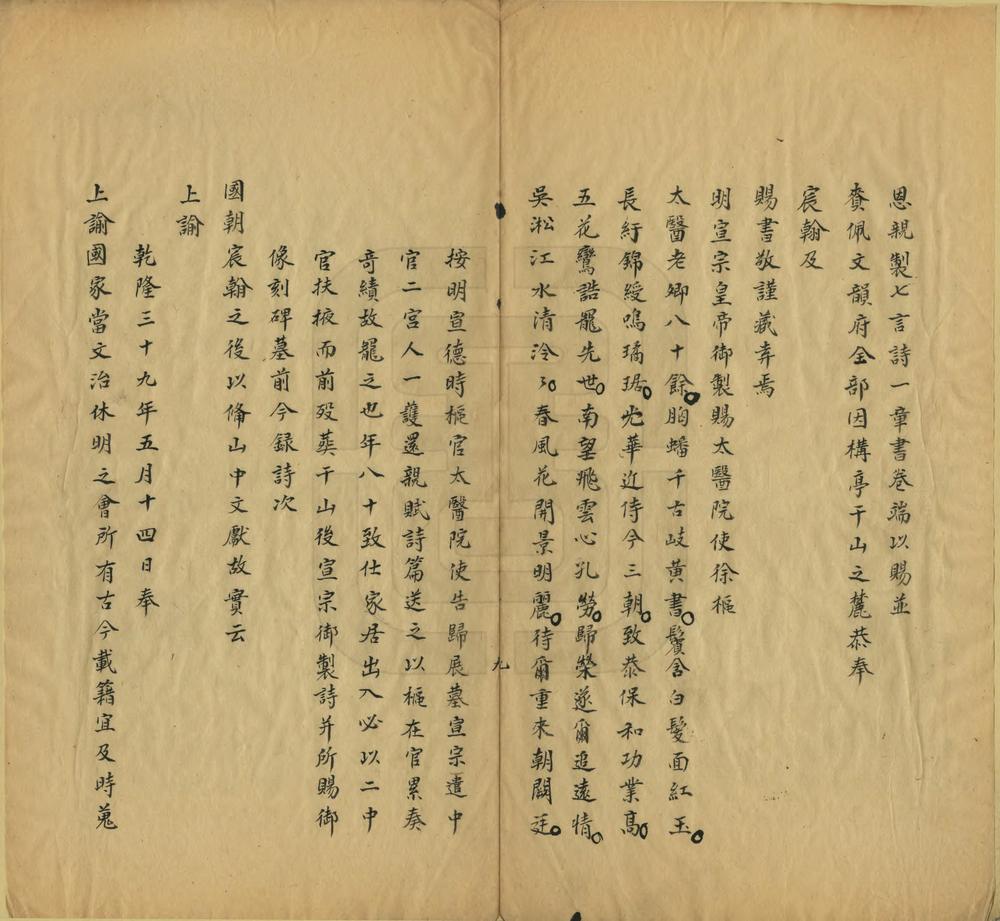 恩親製七言詩一章書卷端以賜並
賚佩文韻府全部因構亭干山之麓恭奉
宸翰及
賜書敬謹藏弆焉
明宣宗皇帝御製賜太醫院使徐樞
太醫老卿八十餘。胸蟠千古岐黃書。鬢含白髮面紅玉。
長紆錦綬鳴璚琚。光華近侍今三朝。致恭保和功業高。
五花鸞誥寵先世。南望飛雲心孔勞。歸榮遂爾追遠情。
吳淞江水清泠泠。春風花開景明麗。待爾重來朝闕廷。
九
按明宣德時樞官太醫院使告歸展墓宣宗遣中
官二宮人一護還親賦詩篇送之以樞在官累奏
奇績故寵之也年八十致仕家居出入必以二中
官扶掖而前歿葬干山後宣宗御製詩并所賜御
像刻碑墓前今録詩次
國朝宸翰之後以備山中文獻故實云
上諭
乾隆三十九年五月十四日奉
上諭國家當文治休明之會所有古今載籍宜及時蒐